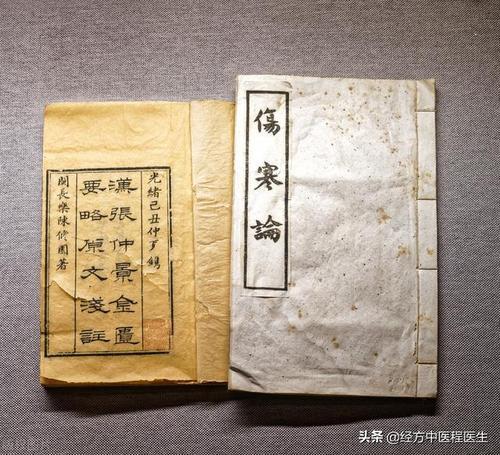 傷寒論
光緒己丑仲鐫
漢張仲景金匱
要略原文淺註
閩長樂陳修園著
头条 @经方中医程医生